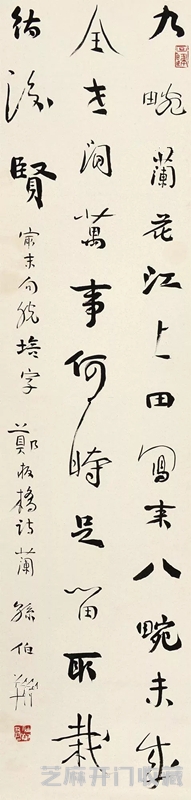 九畹蘭花江上田寫来八畹未成
全世間萬事何時足留取栽
待後賢 㝡末句脱培字 鄭板橋詩蘭 孫伯翔
芝麻开门收藏网